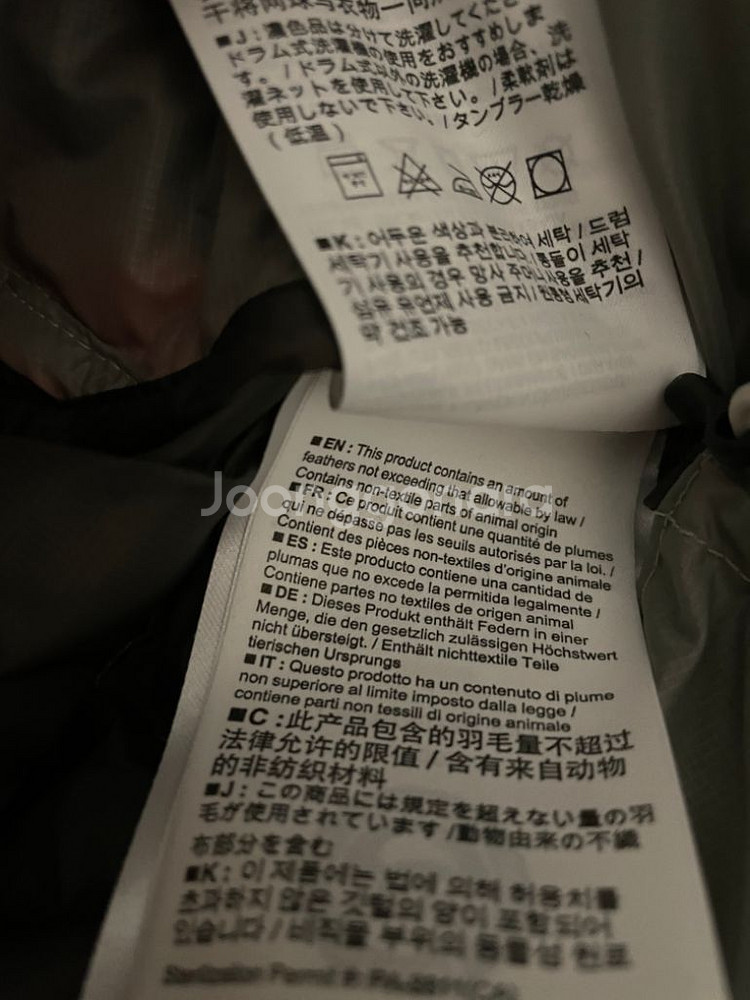 干将网球与衣物一同
■J：濃色品は分けて洗濯してくださ
ドラム式洗濯機の使用をおすすめしま
す。/ドラム式以外の洗濯機の場合、洗
濯ネットを使用して下さい。/柔軟剤は
使用しないで下さい。/タンブラー乾燥
(低温)
■K : 어두운 색상과 분리하여 세탁 / 드럼
세탁기 사용을 추천합니다/통돌이 세탁
기 사용의 경우 망사 주머니사용을 추천 /
섬유 유연제 사용 금지 / 전용 세탁기의
약 건조 가능
Joonggonara
■EN : This product contains an amount of
feathers not exceeding that allowable by law /
Contains non-textile parts of animal origin
■FR : Ce produit contient une quantité de plumes
qui ne dépasse pas les seuils autorisés par la loi. /
Contient des pièces non-textiles d'origine animale
■ES : Este producto contiene una cantidad de
plumas que no excede la permitida legalmente /
Contiene partes no textiles de origen animal
■DE : Dieses Produkt enthält Federn in einer
Menge, die den gesetzlich zulässigen Höchstwert
nicht übersteigt. / Enthält nichttextile Teile
tierischen Ursprungs
■IT : Questo prodotto ha un contenuto di piume
non superiore al limite imposto dalla legge /
contiene parti non tessili di origine animale
■C : 此产品包含的羽毛量不超过
法律允许的限值 / 含有来自动物
的非纺织材料
■J : この商品には規定を超えない量の羽
毛が使用されています /動物由来の不織
布部分を含む
■K : 이 제품에는 법에 의해 허용치를
초과하지 않은 깃털의 양이 포함되어
있습니다 / 비직물 부위의 동물성 원료
Permit #: